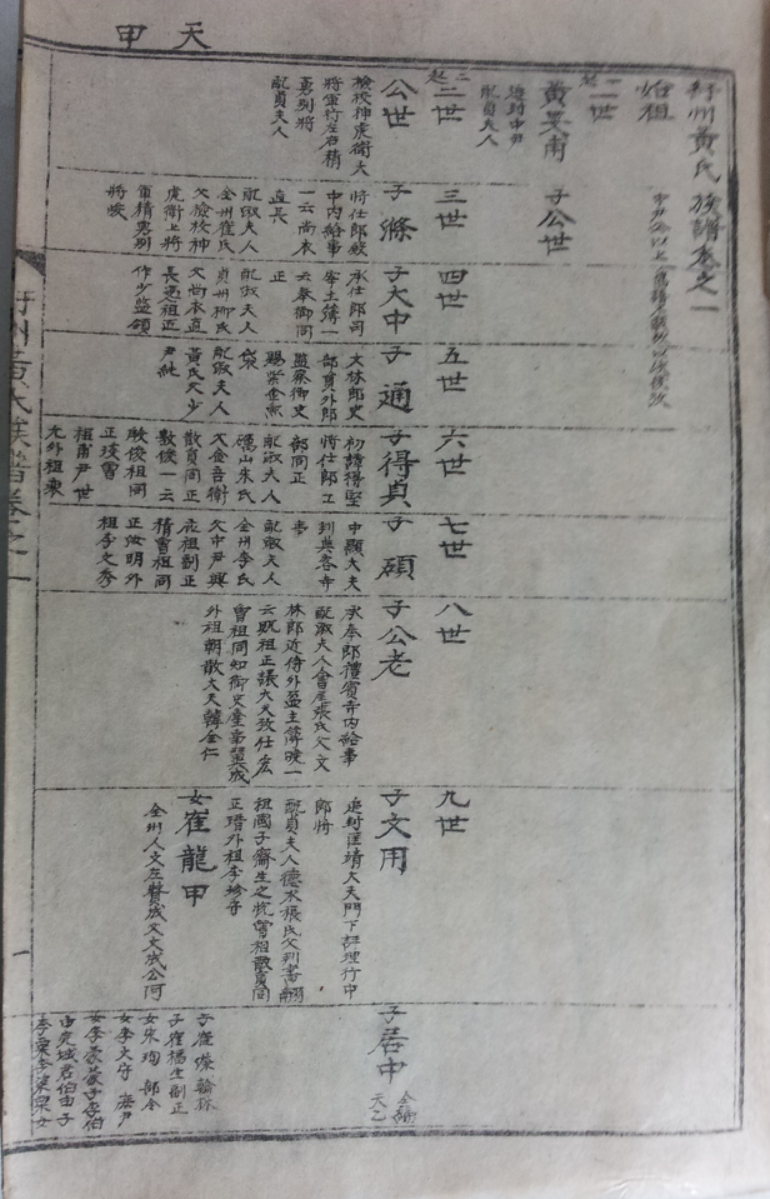 天甲
紆州黃氏族譜卷之一
始祖
一世
黃旻甫
追封中尹
配貞夫人
子公世
二世
公世
檢校神虎衛大
將軍行左右精
勇別將
配貞夫人
三世
子滌
將仕郎殿
中內給事
一云尚衣
直長
配淑夫人
全州崔氏
父檢校神
虎衛上將
軍精勇別
將峻
四世
子大中
承仕郎司
宰主簿一
云奉御同
正
配淑夫人
貞州柳氏
父尚衣直
長惠祖正
作少監領
五世
子通
文林郎史
部員外郎
監察御史
賜紫金魚
袋
配淑夫人
黃氏父少
尹純
六世
子得貞
初諱得堅
將仕郎工
部同正
配淑夫人
礪山朱氏
父金吾衛
散員同正
敷俊一云
敭俊祖同
正琰曾
祖甫尹世
允外祖裵
七世
子碩
中顯大夫
判典客寺
事
配淑夫人
全州李氏
父中尹與
庇祖副正
精曾祖同
正汝明外
祖李文秀
八世
子公老
承奉郎禮賓寺內給事
配淑夫人會尾張氏父文
林郎近侍外盈主簿晙一
云旣祖正議大夫致仕宏
曾祖同知御史臺事翼成
外祖朝散大夫韓全仁
九世
子文用
追封匡靖大夫門下評理行中
郎將
配貞夫人德水張氏父判書翮
祖國子齋生之忱曾祖散員同
正瑨外祖李珍子
女崔龍甲
全州人文左贊成父文成公阿
子居中
天乙
子崔
子崔橘生副正
女宋珣部令
女李文守庚尹
女李蒙子李伯
由完城君伯由子
李